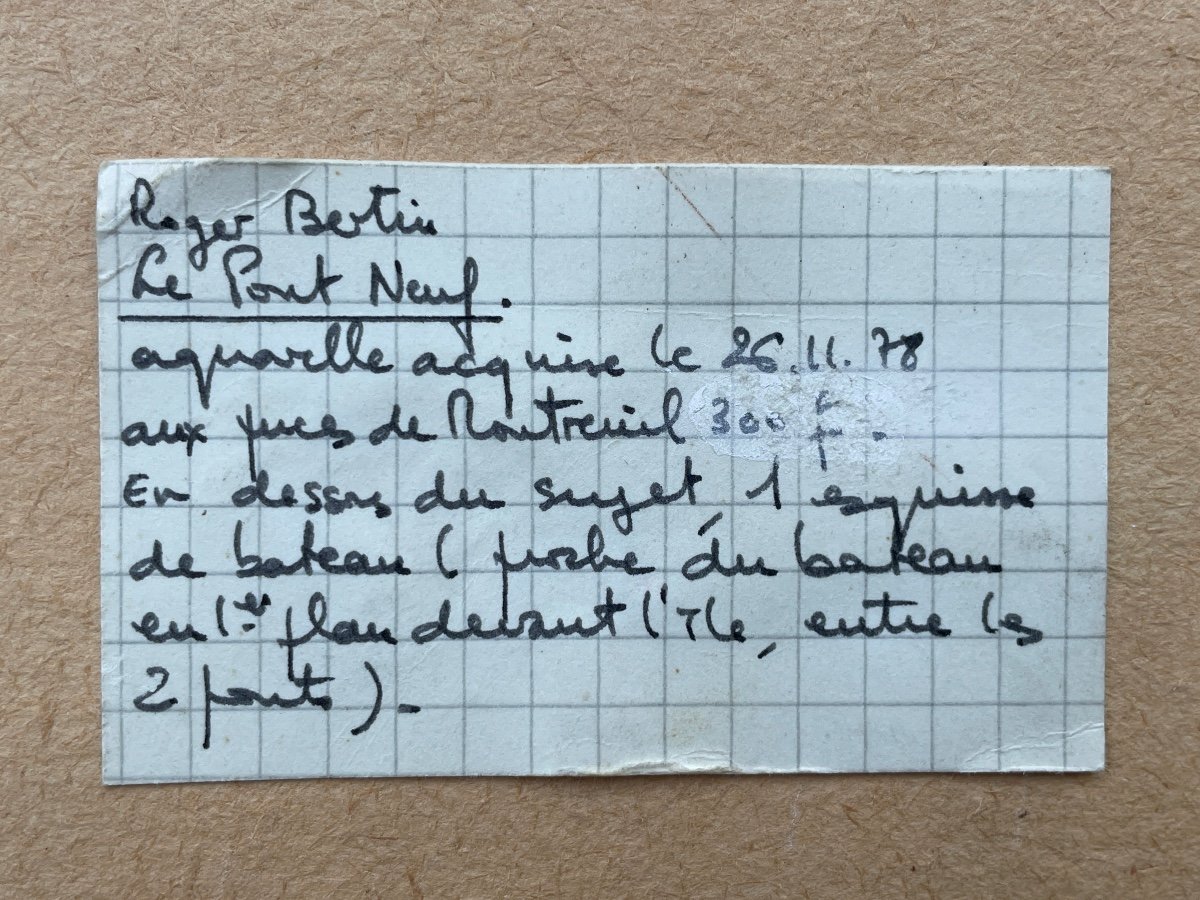 Roger Bertin
Le Pont Neuf.
aquarelle acquise le 26.11.78
aux puces de Montreuil 300 F.
En dessous du sujet, 1 esquisse
de bateau (proche du bateau
en 1er plan devant l'île, entre les
2 ponts).